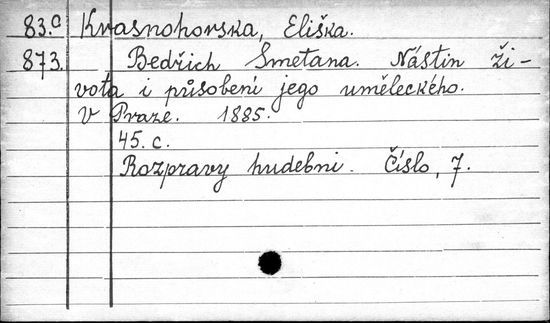 83.c Krasnohorska, Eliška.
873. Bedřich Smetana. Nástin ži-
vota i působení jego uměleckého.
V Praze. 1885.
45. c.
Rozpravy hudebni. Číslo, 7.